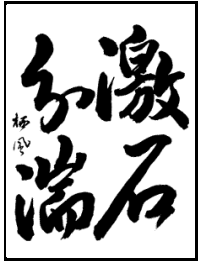 激石
分湍
栖風